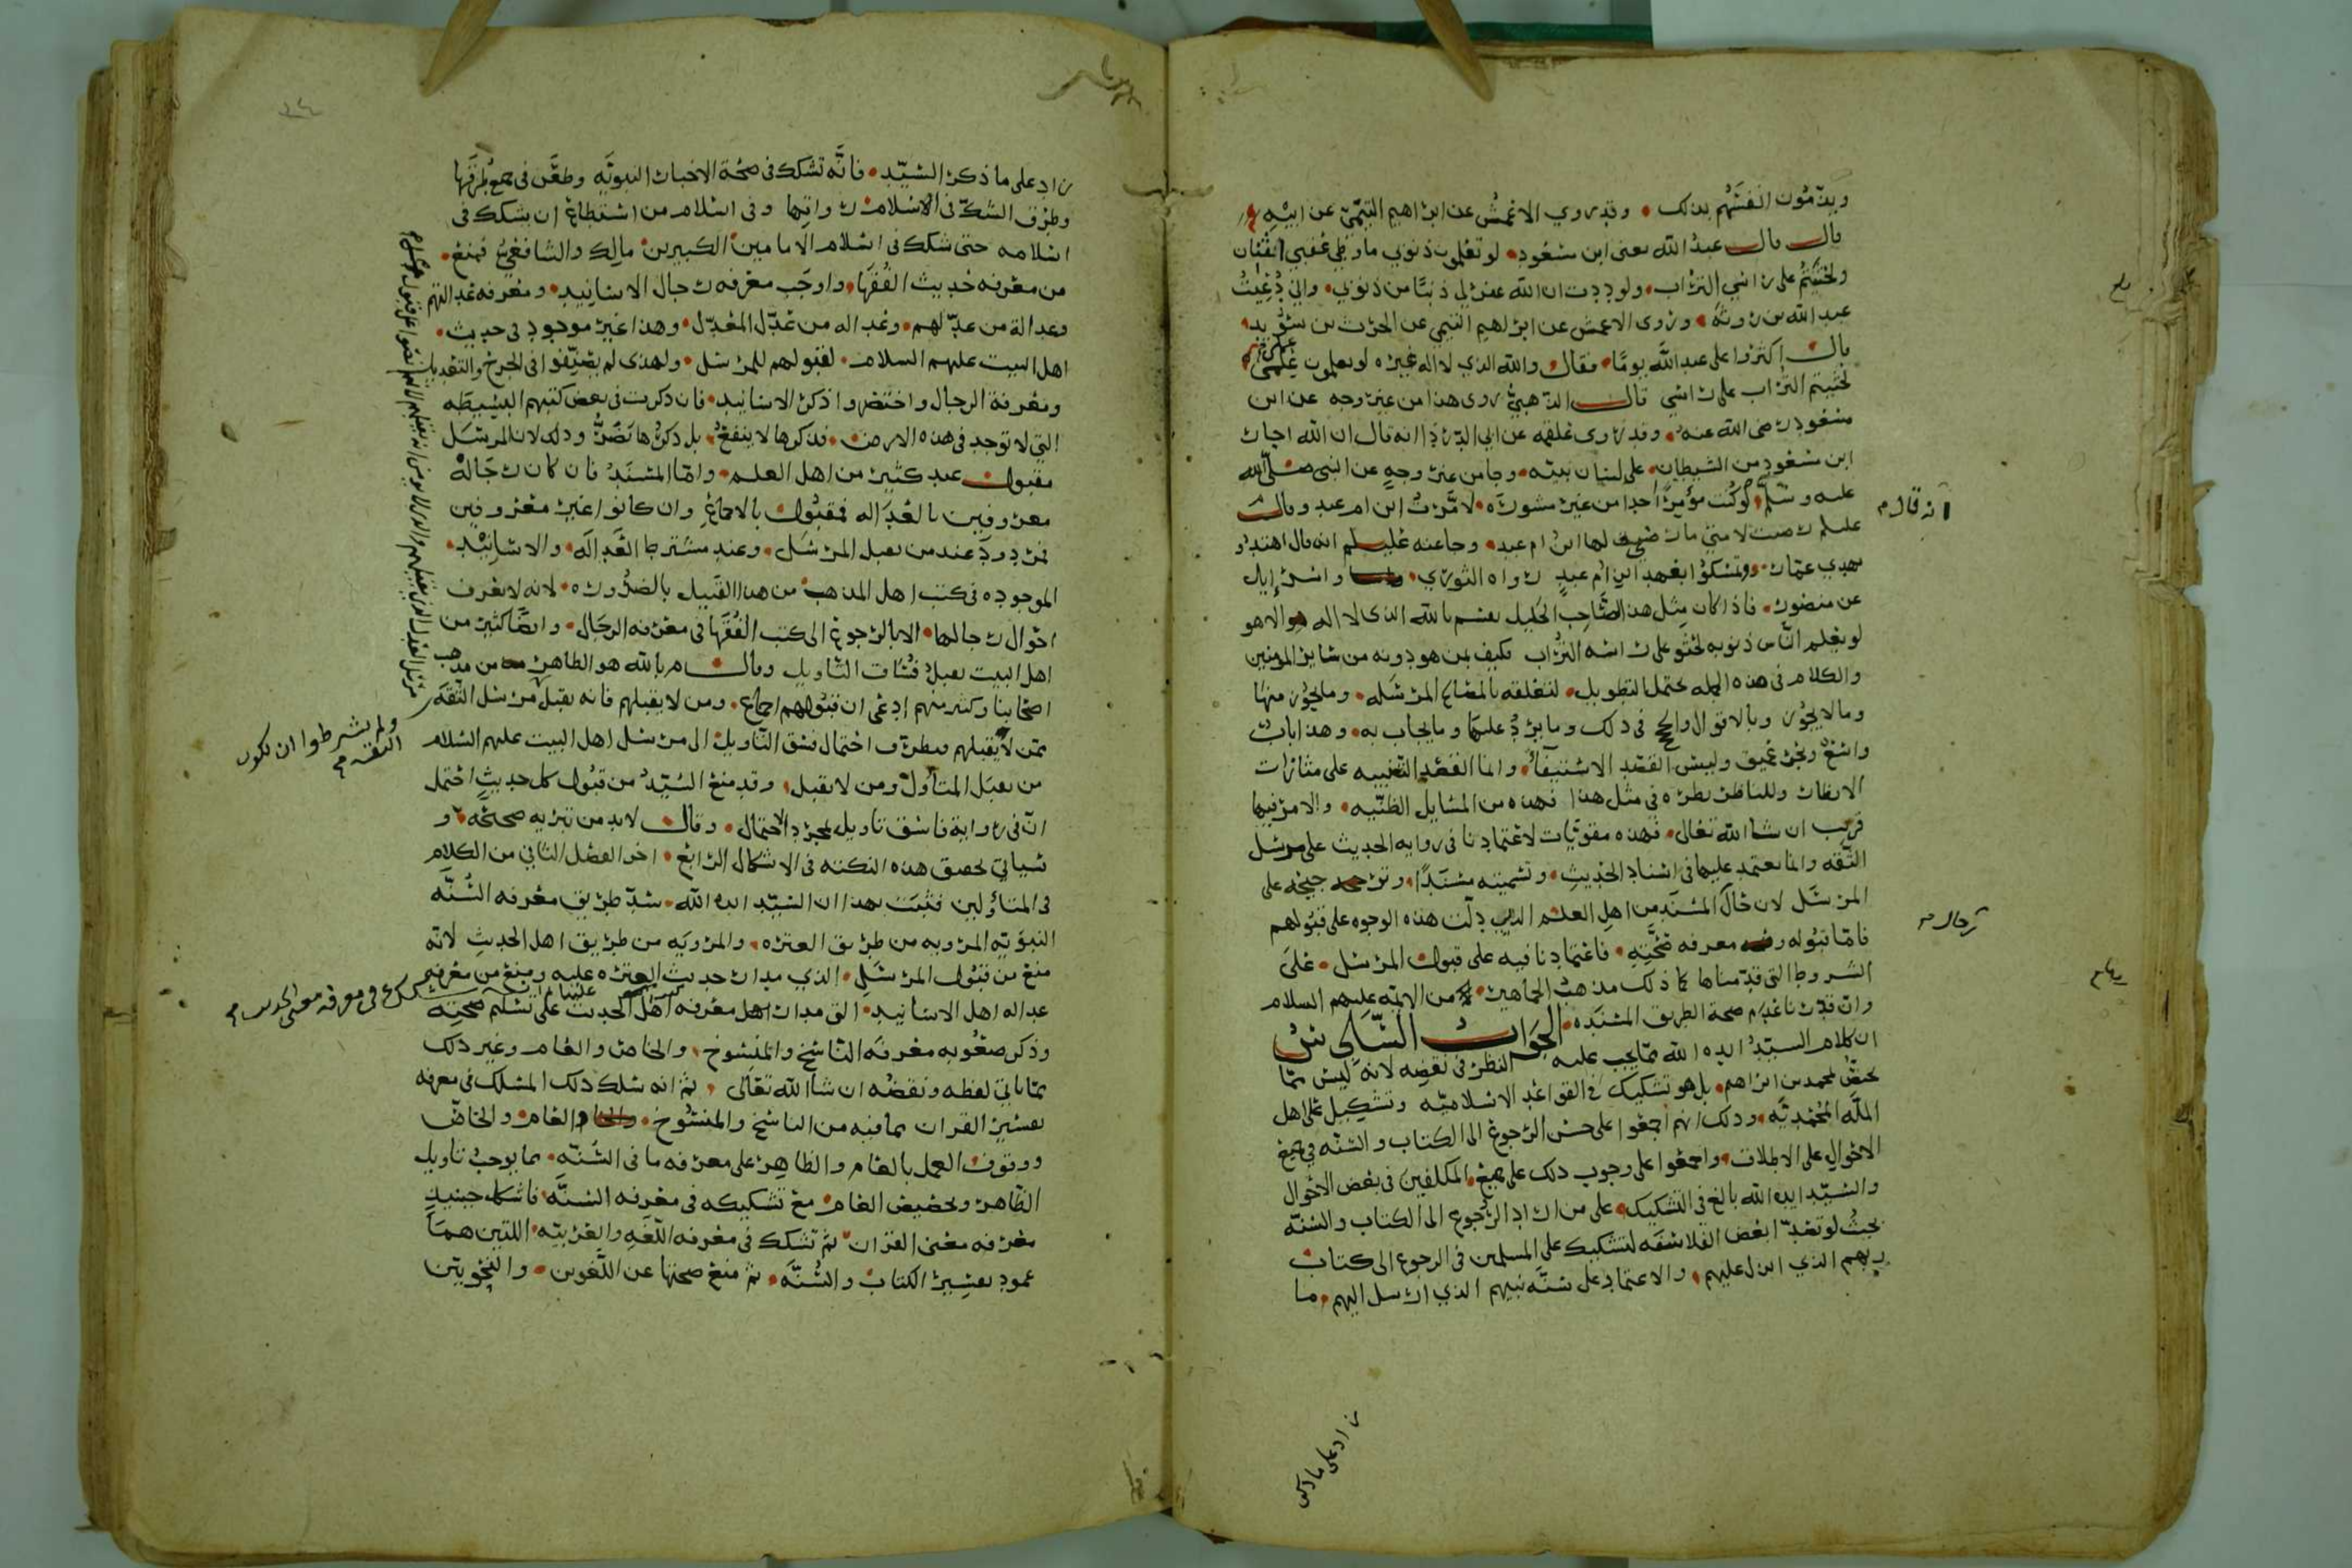 ويذمون انفسهم بذلك وقد روي الاعمش عن ابراهيم التيمي عن ابيه
قال قال عبد الله يعنى ابن مسعود لو تعلمون ذنوبي ما وطي عقبي اثنان
ولحثيتم على راسي التراب ولوددت ان الله غفر لي ذنبا من ذنوبي واني دعيت
عبد الله بن روثه وروى الاعمش عن ابرهيم التيمي عن الحرث بن سويد
قال اكثروا على عبد الله يوما فقال والله الذي لا اله غيره لو تعلمون علمي
لحثيتم التراب على راسي قال الذهبي روى هذا من غير وجه عن ابن
مسعود رضى الله عنه وقد روى علقمه عن ابي الدرذا انه قال ان الله اجار
ابن مسعود من الشيطان على لسان نبيه وجا من غير وجه عن النبي صلى الله
عليه وسلم لو كنت مؤمرا احدا من غير مشوره لامرت ابن ام عبد وقال
عليلم رضت لامتي ما رضي لها ابن ام عبد وجا عنه عليلم انه قال اهتدوا
بهدي عمار وتمسكوا بعهد ابن ام عبد رواه الثوري واسرايل
عن منصور فاذا كان مثل هذا الصاحب الجليل يقسم بالله الذى لا اله الا هو
لو يعلم الناس ذنوبه لحثو على راسه التراب فكيف بمن هو دونه من ساير المومنين
والكلام فى هذه الجمله يحتمل التطويل لتعلقه بالمصالح المرسله وما يجوز منها
وما لا يجوز وبالاقوال والحجج في ذلك وما يرد عليها وما يجاب به وهذا باب
واسع وبحر عميق وليس القصد الاستيفا وانما القصد التنبيه على مثارات
الانظار وللناظر نظره في مثل هذا فهذه من المسايل الظنيه والامر فيها
قريب ان شا الله تعالى فهذه مقويات لاعتمادنا فى روايه الحديث على مرسل
الثقه وانما نعتمد عليها فى اسناد الحديث وتسميته مسندا وترجيحه على
المرسل لان حال المسند من اهل العلم الذي دلت هذه الوجوه على قبولهم
فاما قبوله ومعرفه صحته فاعتمادنا فيه على قبول المرسل على
الشروط التى قدمناها كما ذلك مذهب الجماهير من الايمه عليهم السلام
وان قدرنا عدم صحة الطريق المسنده الجواب السادس
ان كلام السيد ايده الله مما يجب عليه النظر فى نقضه لانه ليس مما
يخص محمد بن ابراهيم بل هو تشكيك في القواعد الاسلاميه وتشكيل على اهل
المله المحمديه وذلك انهم اجمعوا على حسن الرجوع الى الكتاب والسنه في جميع
الاحوال على الاطلاق واجمعوا على وجوب ذلك على جميع المكلفين فى بعض الاحوال
والسيد ايده الله بالغ فى التشكيك على من اراد الرجوع الى الكتاب والسنه
بحيث لو تعدا بعض الفلاسفه لتشكيك على المسلمين فى الرجوع الى كتاب
ربهم الذي انزل عليهم والاعتماد على سنه نبيهم الذي ارسل اليهم ما
انه قال م
رجال م
زاد على ما ذكر
زاد على ما ذكر السيد فانه تشكك فى صحة الاخبار النبويه وطعن فى جميع طرقها
وطرق الشك فى الاسلام رواتها وفى اسلام من استطاع ان يشكك فى
اسلامه حتى شكك فى اسلام الامامين الكبيرين مالك والشافعي فمنع
من معرفه حديث الفقها واوجب معرفه رجال الاسانيد ومعرفه عدالتهم
وعدالة من عدلهم وعداله من عدل المعدل وهذا غير موجود فى حديث
اهل البيت عليهم السلام لقبولهم للمرسل ولهذى لم يصنفوا فى الجرح والتعديل
ومعرفة الرجال واختصروا ذكر الاسانيد فان ذكرت فى بعض كتبهم البسيطه
التي لا توجد فى هذه الارض فذكرها لا ينفع بل ذكرها يضر وذلك لان المرسل
مقبول عند كثير من اهل العلم واما المسند فان كان رجاله
معروفين بالعداله فمقبول بالاجماع وان كانوا غير معروفين
فمردود عند من يقبل المرسل وعند مشترط العداله والاسانيد
الموجوده فى كتب اهل المذهب من هذا القبيل بالضروره لانه لا يعرف
احوال رجالها الا بالرجوع الى كتب الفقها فى معرفه الرجال وايضا كثير من
اهل البيت يقبل فساق التاويل وقال م بالله هو الظاهر من مذهب
اصحابنا وكثير منهم ادعى ان قبولهم اجماع ومن لا يقبلهم فانه يقبل مرسل الثقه
ممن لا يقبلهم فتطرق احتمال فسق التاويل الى مرسل اهل البيت عليهم السلام
من يقبل المتاول ومن لا يقبل وقد منع السيد من قبول كل حديث احتمل
ان فى رواية فاسق تاويل لمجرد الاحتمال وقال لابد من تنزيه صحته و
سياتي تحقيق هذه النكته فى الاشكال الرابع اخر الفصل الثاني من الكلام
فى المتاولين فثبت بهذا ان السيد ايده الله سد طريق معرفه السنه
النبويه المرويه من طريق العتره والمرويه من طريق اهل الحديث لانه
منع من قبول المرسل الذي مدار حديث العتره عليه ومنع من معرفه
عداله اهل الاسانيد التى مدار معرفه اهل الحديث على تسليم صحته
وذكر صعوبه معرفه الناسخ والمنسوخ والخاص والعام وغير ذلك
مما ياتي لفظه ونقضه ان شا الله تعالى ثم انه سلك ذلك المسلك فى معرفه
تفسير القران بما فيه من الناسخ والمنسوخ والعام والخاص
ووقوف العمل بالعام والظاهر على معرفه ما فى السنه مما يوجب تاويل
الظاهر وتخصيص العام مع تشكيكه فى معرفه السنه فاشكل حينيذ
معرفه معنى القران ثم تشكك فى معرفه اللغه والعربيه اللتين هما
عمود تفسير الكتاب والسنه ثم منع صحتها عن اللغوين والنحويين
ولم يشرطوا ان يكون
الثقه م